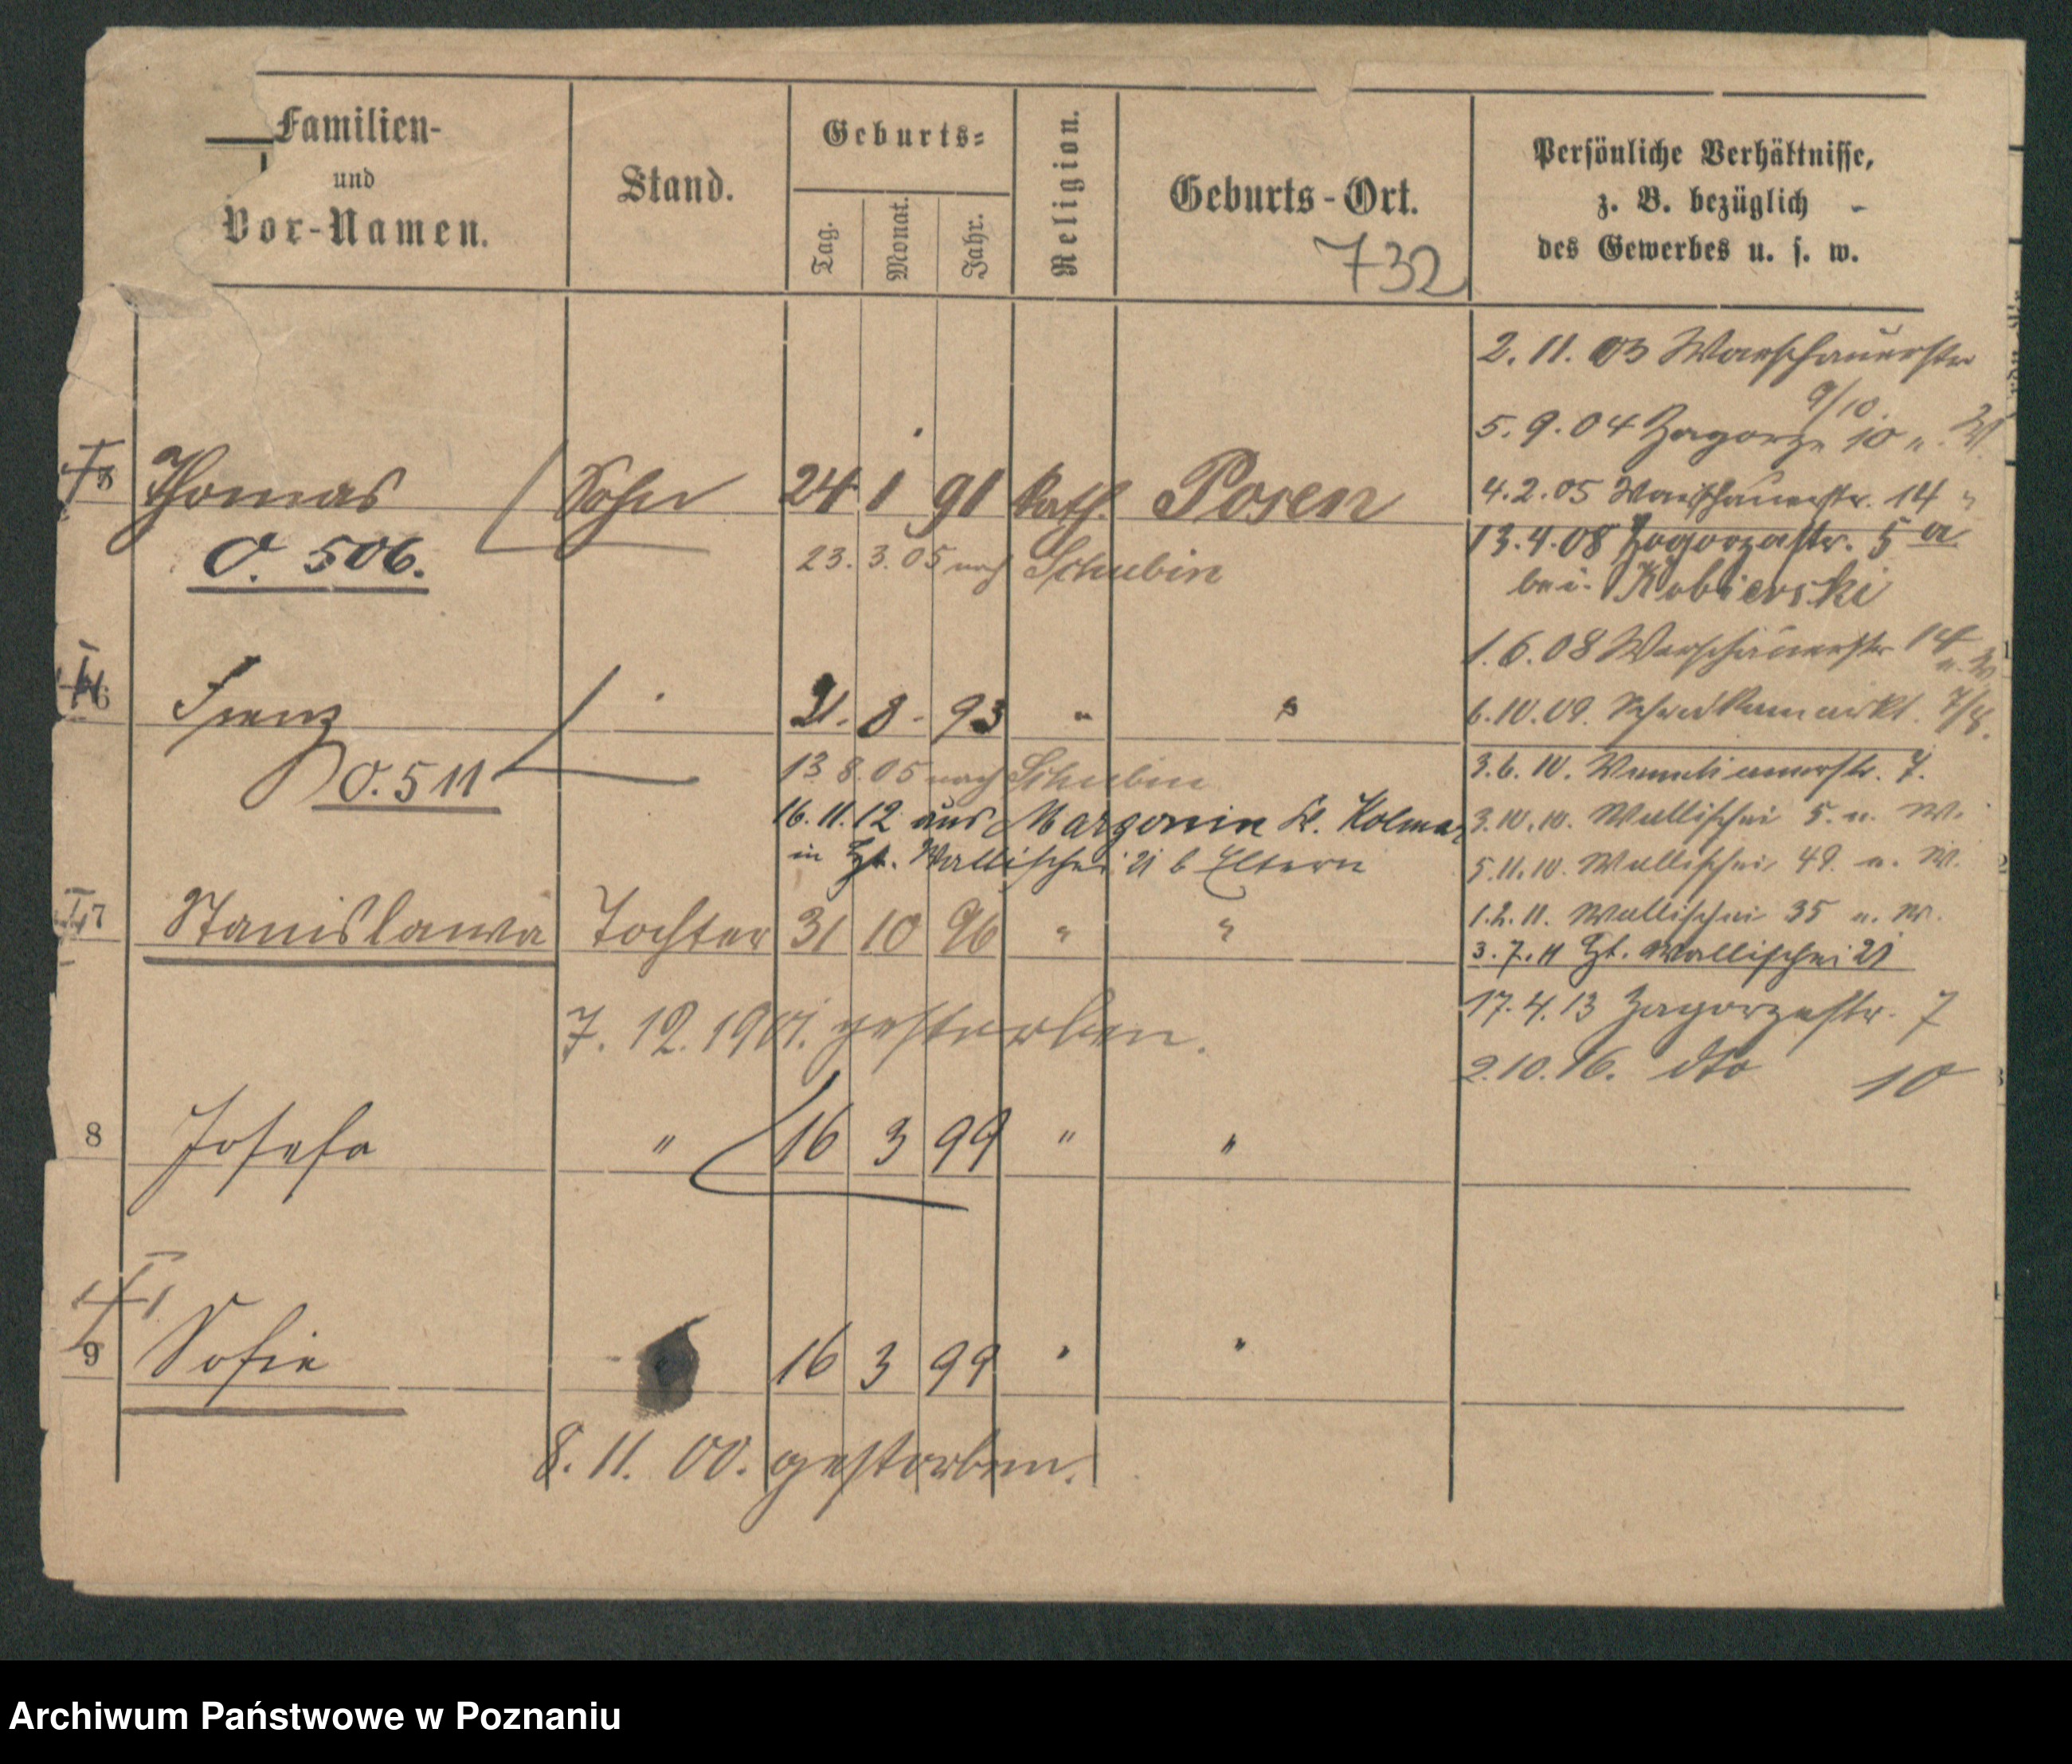 Familien-
und
Vor-Namen.
Stand.
Geburts-
Tag.
Monat.
Jahr.
Religion.
Geburts-Ort.
732
Persönliche Verhältnisse,
z. B. bezüglich
des Gewerbes u. s. w.
2.11.03 Warschauerstr
9/10.
5.9.04 Zagorze 10 u. W
Thomas Sohn 24 1 91 kath. Posen
4.2.05 Warschauerstr. 14 "
O. 506.
23.3.05 nach Schubin
13.4.08 Zagorzastr. 5a
bei Kobierski
1.6.08 Warschauerstr 14
u. W
6 Franz 21. 8. 93 " "
6.10.09. Schrodkamarkt. 7/8.
O. 511
13 8.05 nach Schubin
3.6.10. 7.
16.11.12 aus Margonin Kr. Kolmar
3.10.10. Wallischei 5. u. W.
in Wallischei 21 b Eltern
5.11.10. Wallischei 49. u. W.
7 Stanislawa Tochter 31 10 96 " "
1.2.11. Wallischei 35 u. W.
3.7.11 Wallischei 21
7.12.1901. gestorben.
17.4.13 Zagorzestr. 7
2.10.16. dto 10
8 Josefa " 16 3 99 " "
9 Sofie 16 3 99 " "
8.11.00. gestorben.
Archiwum Państwowe w Poznaniu